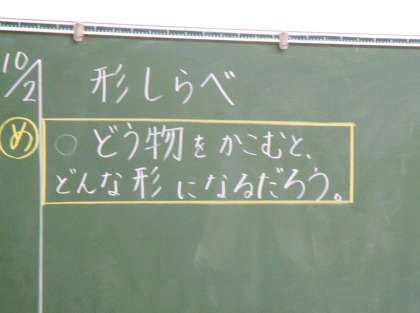 10/2
形しらべ
め
○どう物をかこむと、
どんな形になるだろう。